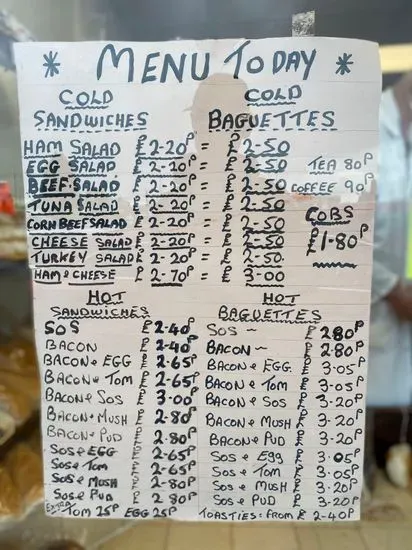 * MENU TODAY *
COLD SANDWICHES
COLD BAGUETTES
HAM SALAD £2-20P = £2-50
EGG SALAD £2-20P = £2-50 TEA 80P
BEEF SALAD £2-20P = £2-50 COFFEE 90P
TUNA SALAD £2-20P = £2-50 COBS
CORN BEEF SALAD £2-20P = £2-50 £1-80P
CHEESE SALAD £2-20P = £2-50
TURKEY SALAD £2-20P = £2-50
HAM & CHEESE £2-70P = £3-00
HOT SANDWICHES
SOS £2-40P
BACON £2-40P
BACON & EGG £2-65P
BACON & TOM £2-65P
BACON & SOS £3-00P
BACON & MUSH £2-80P
BACON & PUD £2-80P
SOS & EGG £2-65P
SOS & TOM £2-65P
SOS & MUSH £2-80P
SOS & PUD £2 80P
EXTRA TOM 25P EGG 25P
HOT BAGUETTES
SOS ~ £2 80P
BACON ~ £2-80P
BACON & EGG £3-05P
BACON & TOM £3-05P
BACON & SOS £3-20P
BACON & MUSH £3-20P
BACON & PUD £3-20P
SOS & EGG £3-05P
SOS & TOM £3-05P
SOS & MUSH £3-20P
SOS & PUD £3-20P
TOASTIES: FROM £2-40P